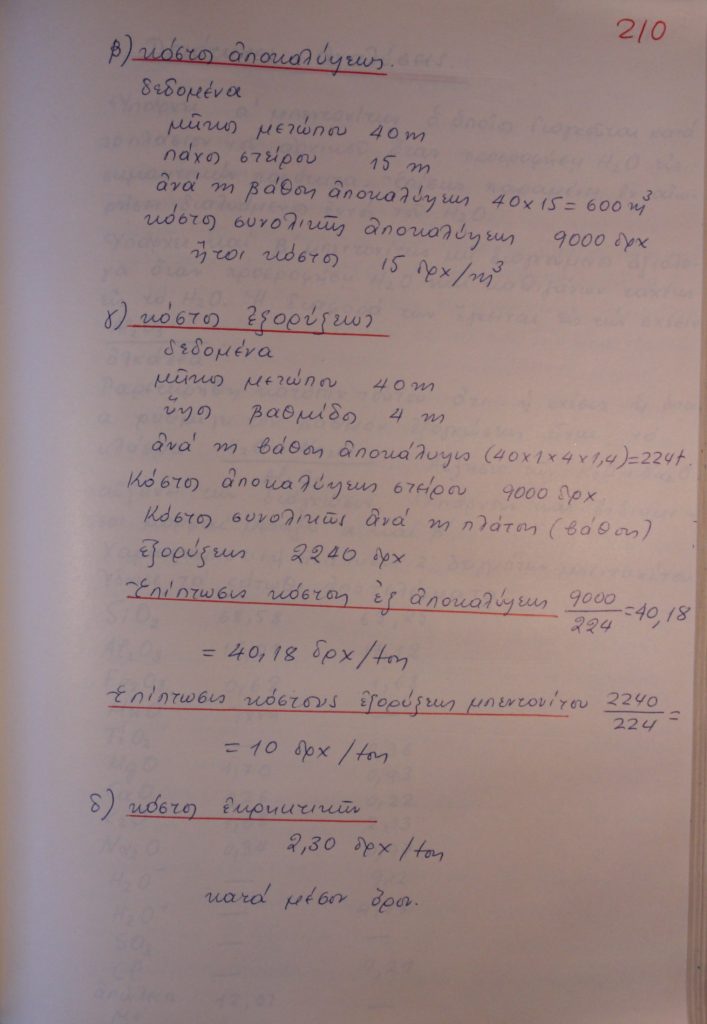 210
β) κόστος ἀποκαλύψεως.
δεδομένα
μῆκος μετώπου 40 m
πάχος στείρου 15 m
ἀνά m βάθος ἀποκαλύψεως 40 x 15 = 600 m³
κόστος συνολικῆς ἀποκαλύψεως 9000 δρχ
ἤτοι κόστος 15 δρχ/m³
γ) κόστος ἐξορύξεως
δεδομένα
μῆκος μετώπου 40 m
ὕψος βαθμίδος 4 m
ἀνά m βάθος ἀποκάλυψις (40x1x4x1,4)=224t.
Κόστος ἀποκαλύψεως στείρου 9000 δρχ
Κόστος συνολικῆς ἀνά m πλάτος (βάθος)
ἐξορύξεως 2240 δρχ
Ἐπίπτωσις κόστους ἐξ ἀποκαλύψεως 9000/224 = 40,18
= 40,18 δρχ/ton
Ἐπίπτωσις κόστους ἐξορύξεως μπεντονίτου 2240/224 =
= 10 δρχ/ton
δ) κόστος ἐκρηκτικῶν
2,30 δρχ/ton
κατά μέσον ὅρον.